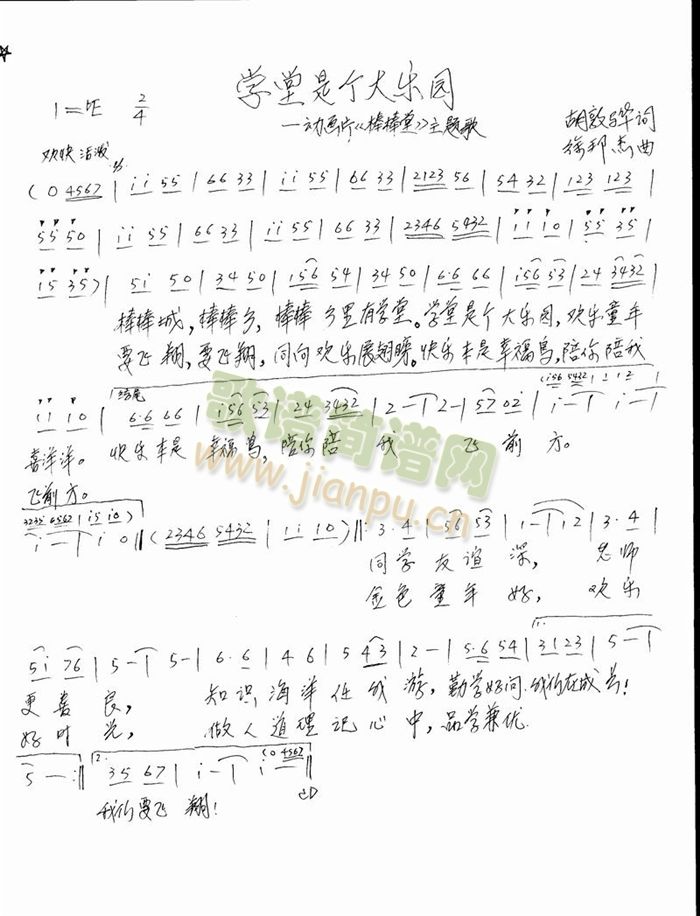 学堂是个大乐园
1=bE 2/4
—动画片《棒棒堂》主题歌
胡敦骅词
徐邦杰曲
欢快 活泼
(0 4567 | i i 55 | 66 33 | i i 55 | 66 33 | 2123 56 | 54 32 | 123 123 |
55 50 | i i 55 | 66 33 | i i 55 | 66 33 | 2346 5432 | i i i 0 | 55 35 |
i5 35) | 5i 50 | 34 50 | i56 54 | 34 50 | 6·6 66 | i56 53 | 24 3432 |
棒棒城,棒棒乡,棒棒乡里有学堂。学堂是个大乐园,欢乐童年
要飞翔,要飞翔,同向欢乐展翅膀。快乐本是幸福鸟,陪你陪我
结尾
(i56 5432 | i i i 2 | i
i i i 0 | 6·6 66 | i56 53 | 24 3432 | 2 - | 2 - | 57 02 | i - | i - |
喜洋洋。快乐本是幸福鸟,陪你陪我飞前方。
飞前方。
3235 6562 | i5 i0)
i - | i 0 || (2346 5432 | i i i0) ||: 3·4 | 56 53 | i - | i 2 | 3·4 |
同学友谊深,老师
金色童年好,欢乐
1.
5i 76 | 5 - | 5 - | 6·6 | 46 | 5 43 | 2 - | 5·6 54 | 3123 | 5 - |
更善良,知识海洋任我游,勤学好问.我们在成长!
好时光,做人道理记心中,品学兼优
2.
(0 4567
5 — :|| 35 67 | i - | i ||
我们要飞翔!
歌谱简谱网
www.jianpu.cn